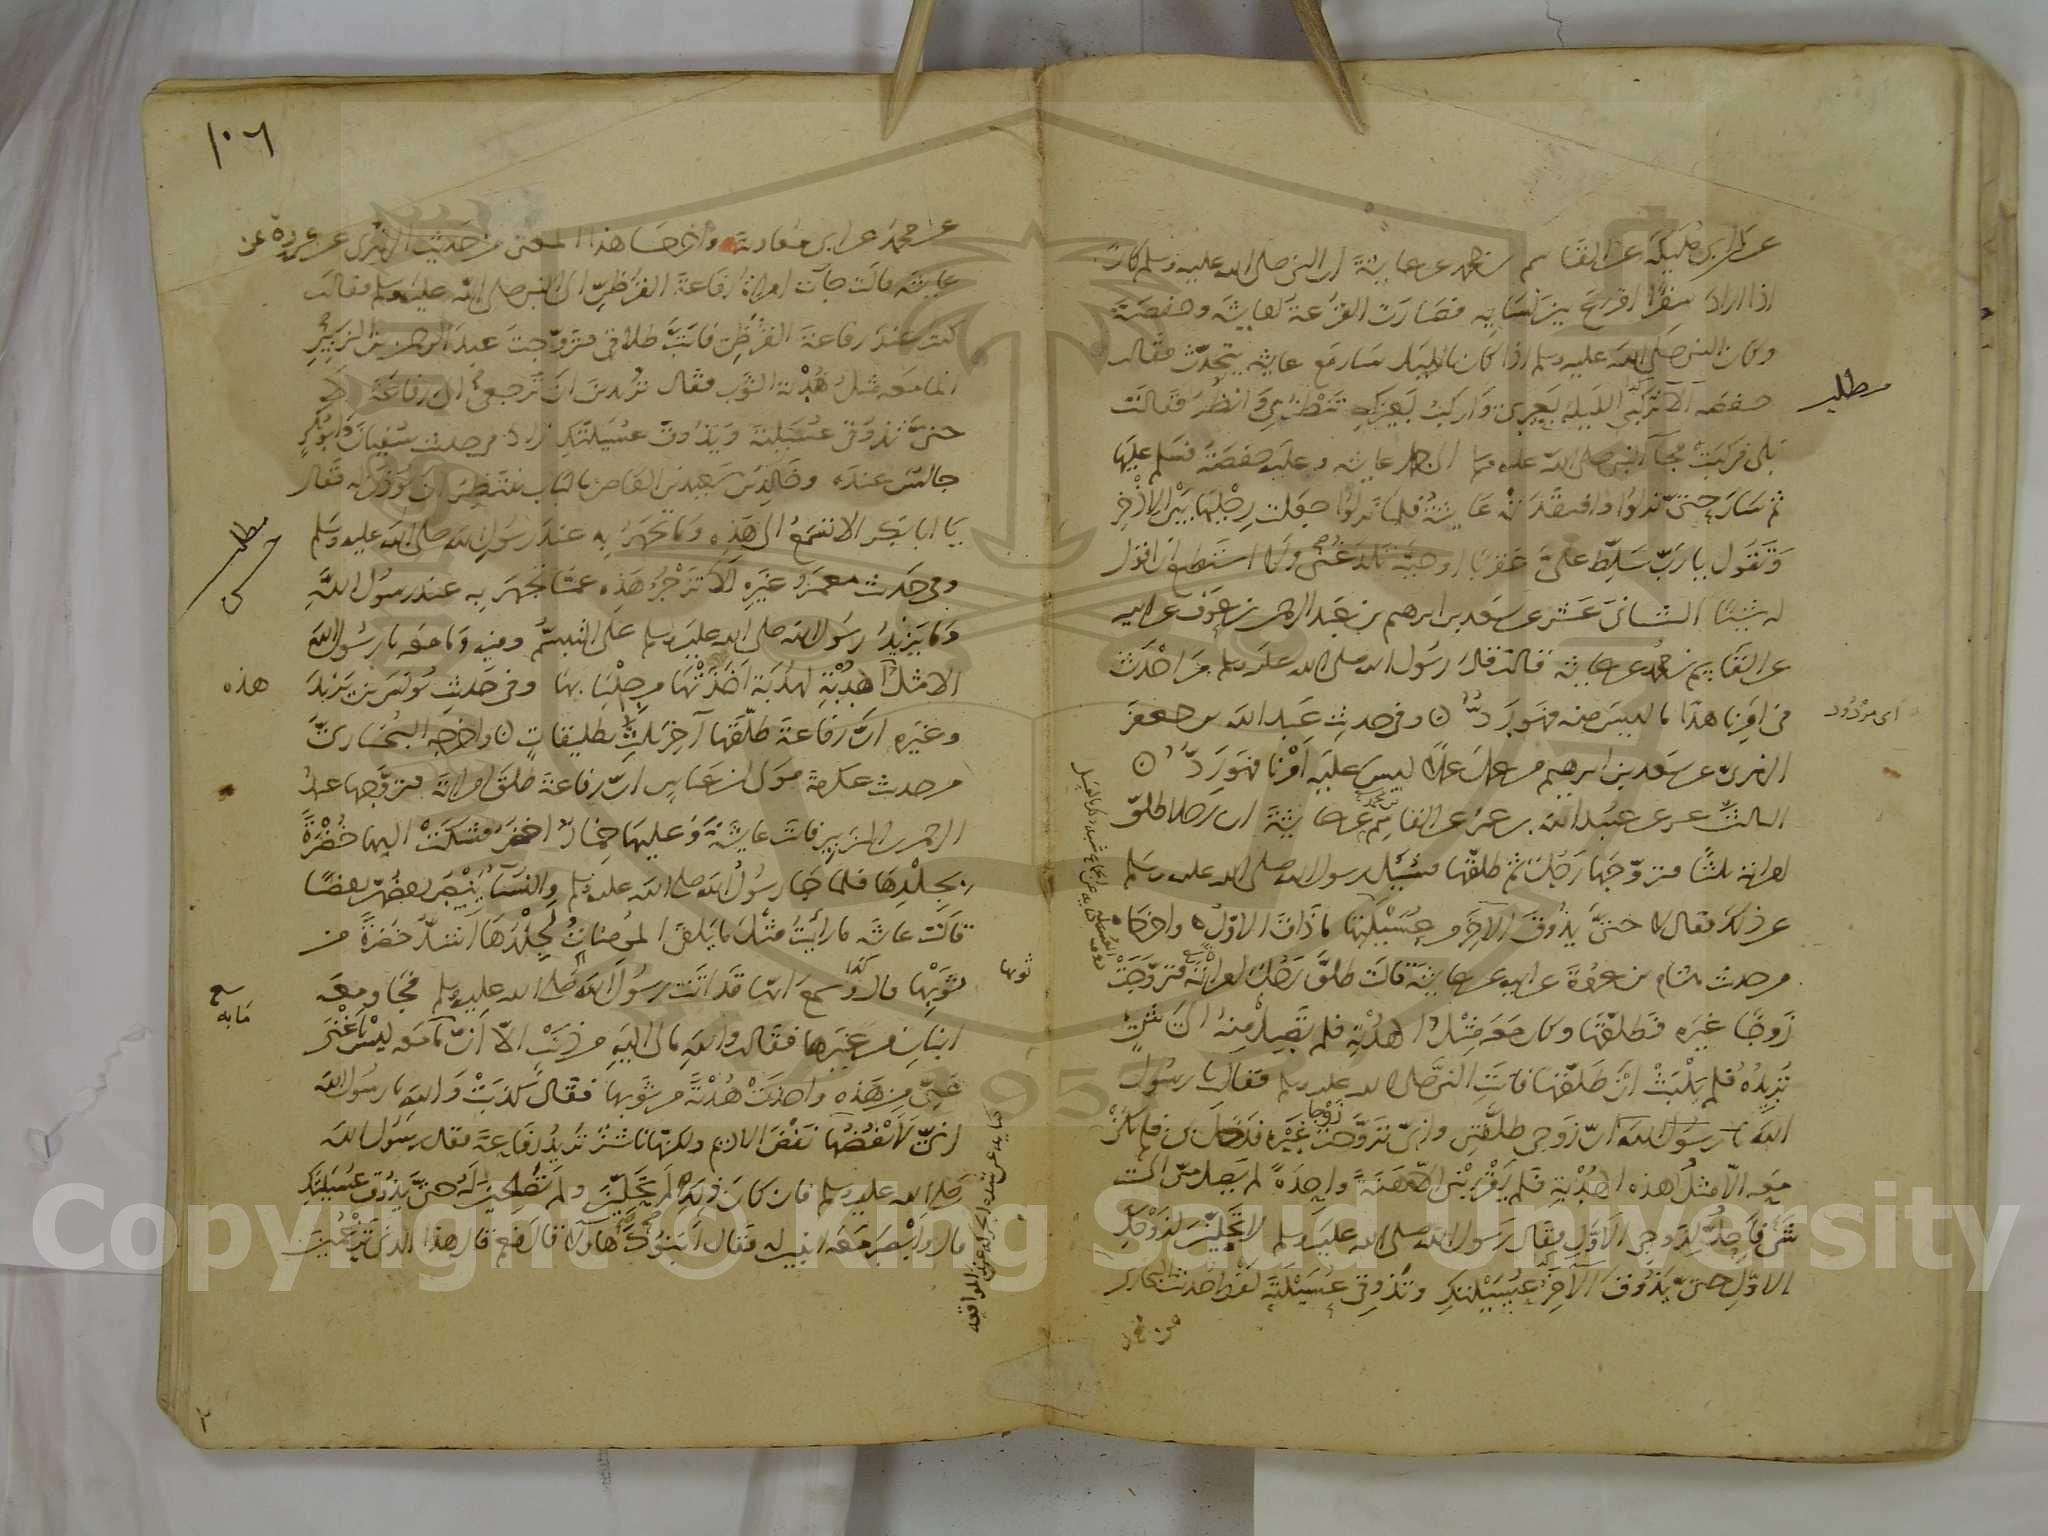 عن ابن أبي مليكة عن القاسم بن محمد عن عايشة ان النبي صلى الله عليه وسلم كان
اذا اراد سفرًا اقرع بين نسايه فصارت القرعة لعايشة وحفصة
وكان النبي صلى الله عليه وسلم اذا كان بالليل سار مع عايشة يتحدث فقالت
حفصه الا تركبي الليلة بعيري واركب بعيرك تنظرين وانظر فقالت
مطلب
بلى فركبت فجآ النبي صلى الله عليه وسلم الى جمل عايشه وعليه حفصة فسلم عليها
ثم سار حتى نزلوا وافتقدته عايشة فلما نزلوا جعلت رجليها بين الاذخر
وتقول يا رب سلط علي عقربا او حية تلدغني ولا استطيع ان اقول
له شيئا الثاني عشر عن سعد بن ابرهيم بن عبد الرحمن بن عوف
عن القاسم بن محمد عن عايشة قالت قال رسول الله صلى الله عليه وسلم من احدث
في امرنا هذا ما ليس منه فهو رد وفي حديث عبد الله بن جعفر
اي مردود
الزهري عن سعد بن ابرهيم من عمل عملا ليس عليه امرنا فهو رد
الثالث عشر عن عبيد الله بن عمر عن القاسم بن محمد عن عايشة ان رجلا طلق
امراته ثلثا فتزوجها رجل ثم طلقها فسئل رسول الله صلى الله عليه وسلم
عن ذلك فقال لا حتى يذوق الآخر من عسيلتها ما ذاق الاول واخرجاه
من حديث هشام بن عروة عن ابيه عن عايشة قالت طلق رجل امراته فتزوجت
زوجا غيره فطلقها وكان معه مثل الهدبة فلم تصل منه الى شيء
تريده فلم يلبث ان طلقها فاتت النبي صلى الله عليه وسلم فقالت يا رسول
الله يا رسول الله ان زوجي طلقني واني تزوجت زوجا غيره فدخل بي فلم يكن
معه الا مثل هذه الهدبة فلم يقربني الا هنة واحدة لم يصل مني الى
شي فاحل لزوجي الاول فقال رسول الله صلى الله عليه وسلم لا تحلين لزوجك
الاول حتى يذوق الآخر عسيلتك وتذوقي عسيلته لفظ حديث البخاري
١٠٦
عن محمد عن ابي معاوية واخرجا هذا المعنى من حديث الزهري عن عروة عن
عايشة قالت جآت امراة رفاعة القرظي الى النبي صلى الله عليه وسلم فقالت
كنت عند رفاعة القرظي فابت طلاقي فتزوجت عبد الرحمن بن الزبير
انما معه مثل هدبة الثوب فقال تريدين ان ترجعي الى رفاعة لا
حتى تذوقي عسيلته ويذوق عسيلتك زاد في حديث سفيان وابو بكر
جالس عنده وخالد بن سعيد بن العاص بالباب ينتظر ان يوذن له فقال
يا ابا بكر الا تسمع الى هذه وما تجهر به عند رسول الله صلى الله عليه وسلم
مطلب
وفي حديث معمر وغيره الا تزجر هذه عما تجهر به عند رسول الله
وما يزيد رسول الله صلى الله عليه وسلم على التبسم وفيه وما معه يا رسول الله
الا مثل الهدبة لهدبة اخذتها من جلبابها وفي حديث يونس بن يزيد
هذه
وغيره ان رفاعة طلقها آخر ثلث تطليقات واخرجه البخاري
من حديث عكرمة مولى ابن عباس ان رفاعة طلق امراته فتزوجها عبد
الرحمن بن الزبير قالت عايشة وعليها خمار اخضر فشكت اليها خضرة
بجلدها فلما جا رسول الله صلى الله عليه وسلم والنسآ ينصر بعضهن بعضا
قالت عايشه ما رايت مثل ما يلقى المومنات لجلدها اشد خضرة من
ثوبها قال وسمع انها قد اتت رسول الله صلى الله عليه وسلم فجا ومعه
ثوبها
ابنان من غيرها فقالت والله ما لي اليه من ذنب الا ان ما معه ليس باغنى
عني من هذه واخذت هدبة من ثوبها فقال كذبت والله يا رسول الله
اني لانفضها نفض الاديم ولكنها ناشز تريد رفاعة فقال رسول الله
صلى الله عليه وسلم فان كان ذلك لم تحلين ولم تصلحين له حتى يذوق عسيلتك
قال وابصر معه ابنين له فقال ابنوك هاولآ قال نعم قال هذا الذي تزعمين
Copyright © King Saud University